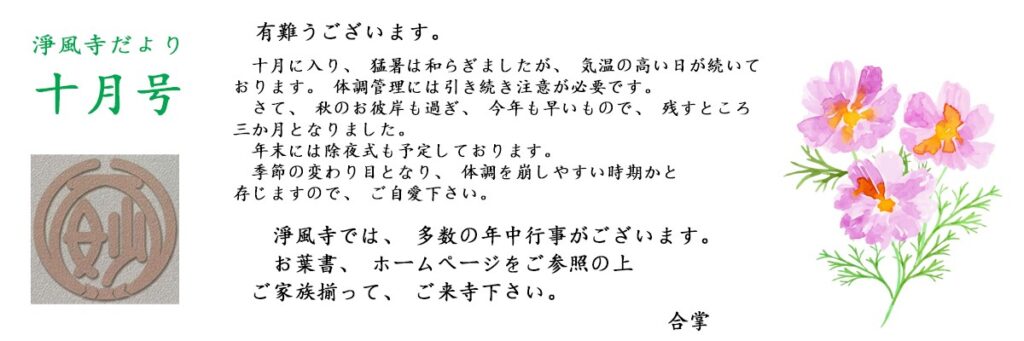 淨風寺だより
十月号
妙
有難うございます。
十月に入り、猛暑は和らぎましたが、気温の高い日が続いて
おります。体調管理には引き続き注意が必要です。
さて、秋のお彼岸も過ぎ、今年も早いもので、残すところ
三か月となりました。
年末には除夜式も予定しております。
季節の変わり目となり、体調を崩しやすい時期かと
存じますので、ご自愛下さい。
淨風寺では、多数の年中行事がございます。
お葉書、ホームページをご参照の上
ご家族揃って、ご来寺下さい。
合掌